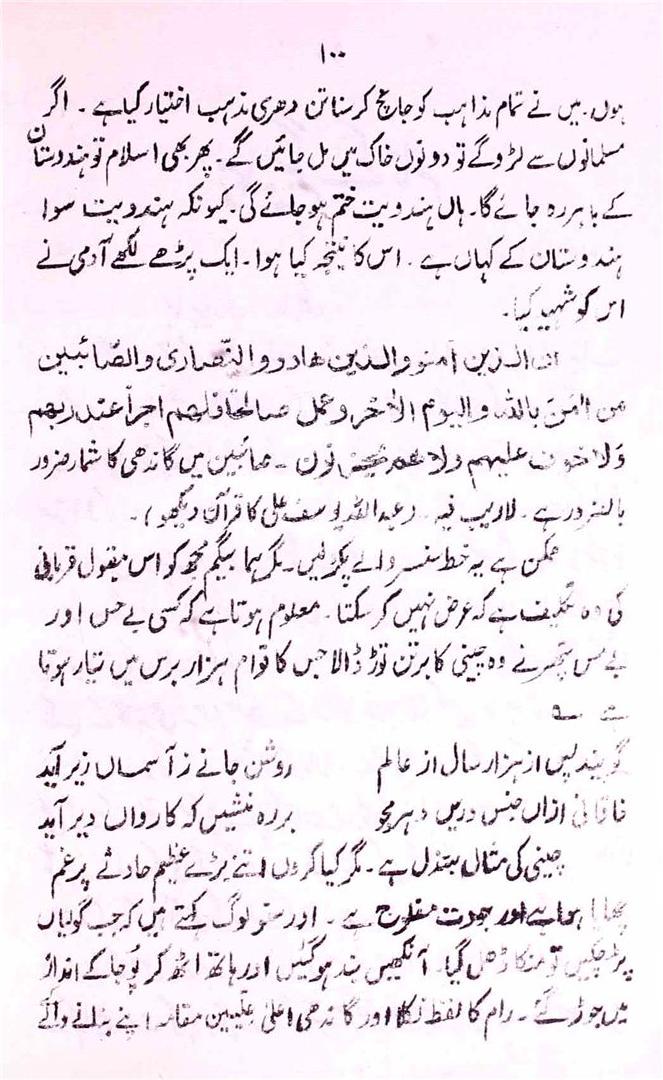 ۱۰۰
ہوں۔ میں نے تمام مذاہب کو جانچ کر سناتن دھری مذہب اختیار کیا ہے۔ اگر
مسلمانوں سے لڑو گے تو دونوں خاک میں مل جائیں گے۔ پھر بھی اسلام تو ہندوستان
کے باہر رہ جائے گا۔ ہاں ہندویت ختم ہو جائے گی۔ کیونکہ ہندویت سوا
ہندوستان کے کہاں ہے۔ اس کا نتیجہ کیا ہوا۔ ایک پڑھے لکھے آدمی نے
اس کو شہید کیا۔
ان الذین اٰمنو والذین ھادوو النّصاریٰ والصّائبین
من اٰمن باللہ والیوم الاٰخر وعمل صالحا فلھم اجراً عند ربھم
وَلا خوف علیھم ولا ھم یحزنون ۔ صائبین میں گاندھی کا شمار ضرور
بالضرور ہے۔ لاریب فیہ۔ (عبداللہ یوسف علی کا قرآن دیکھو)۔
ممکن ہے یہ خط سنسر والے پکڑ لیں۔ مگر ہما بیگم مجھ کو اس مقبول قربانی
کی وہ تکلیف ہے کہ عرض نہیں کر سکتا۔ معلوم ہوتا ہے کہ کسی بے حس اور
بے مس پتھر نے وہ چینی کا برتن توڑ ڈالا جس کا قوام ہزار برس میں تیار ہوتا
ہے ؎
گویند پس از ہزار سال از عالم روشن جانے ز آسماں زیر آید
خاقانی ازاں جنس دریں دہر مجو بر رہ منشیں کہ کارواں دیر آید
چینی کی مثال مبتذل ہے۔ مگر کیا کروں اتنے بڑے عظیم حادثے پر غم
چھایا ہوا ہے اور جودت مفلوج ہے۔ اور سنو لوگ کہتے ہیں کہ جب گولیاں
پڑ چکیں تو منکا ڈھل گیا۔ آنکھیں بند ہو گئیں اور ہاتھ اٹھ کر پُوجا کے انداز
میں جوڑ گئے۔ رام کا لفظ نکلا اور گاندھی اعلیٰ علیین مقام اپنے بنانے والے